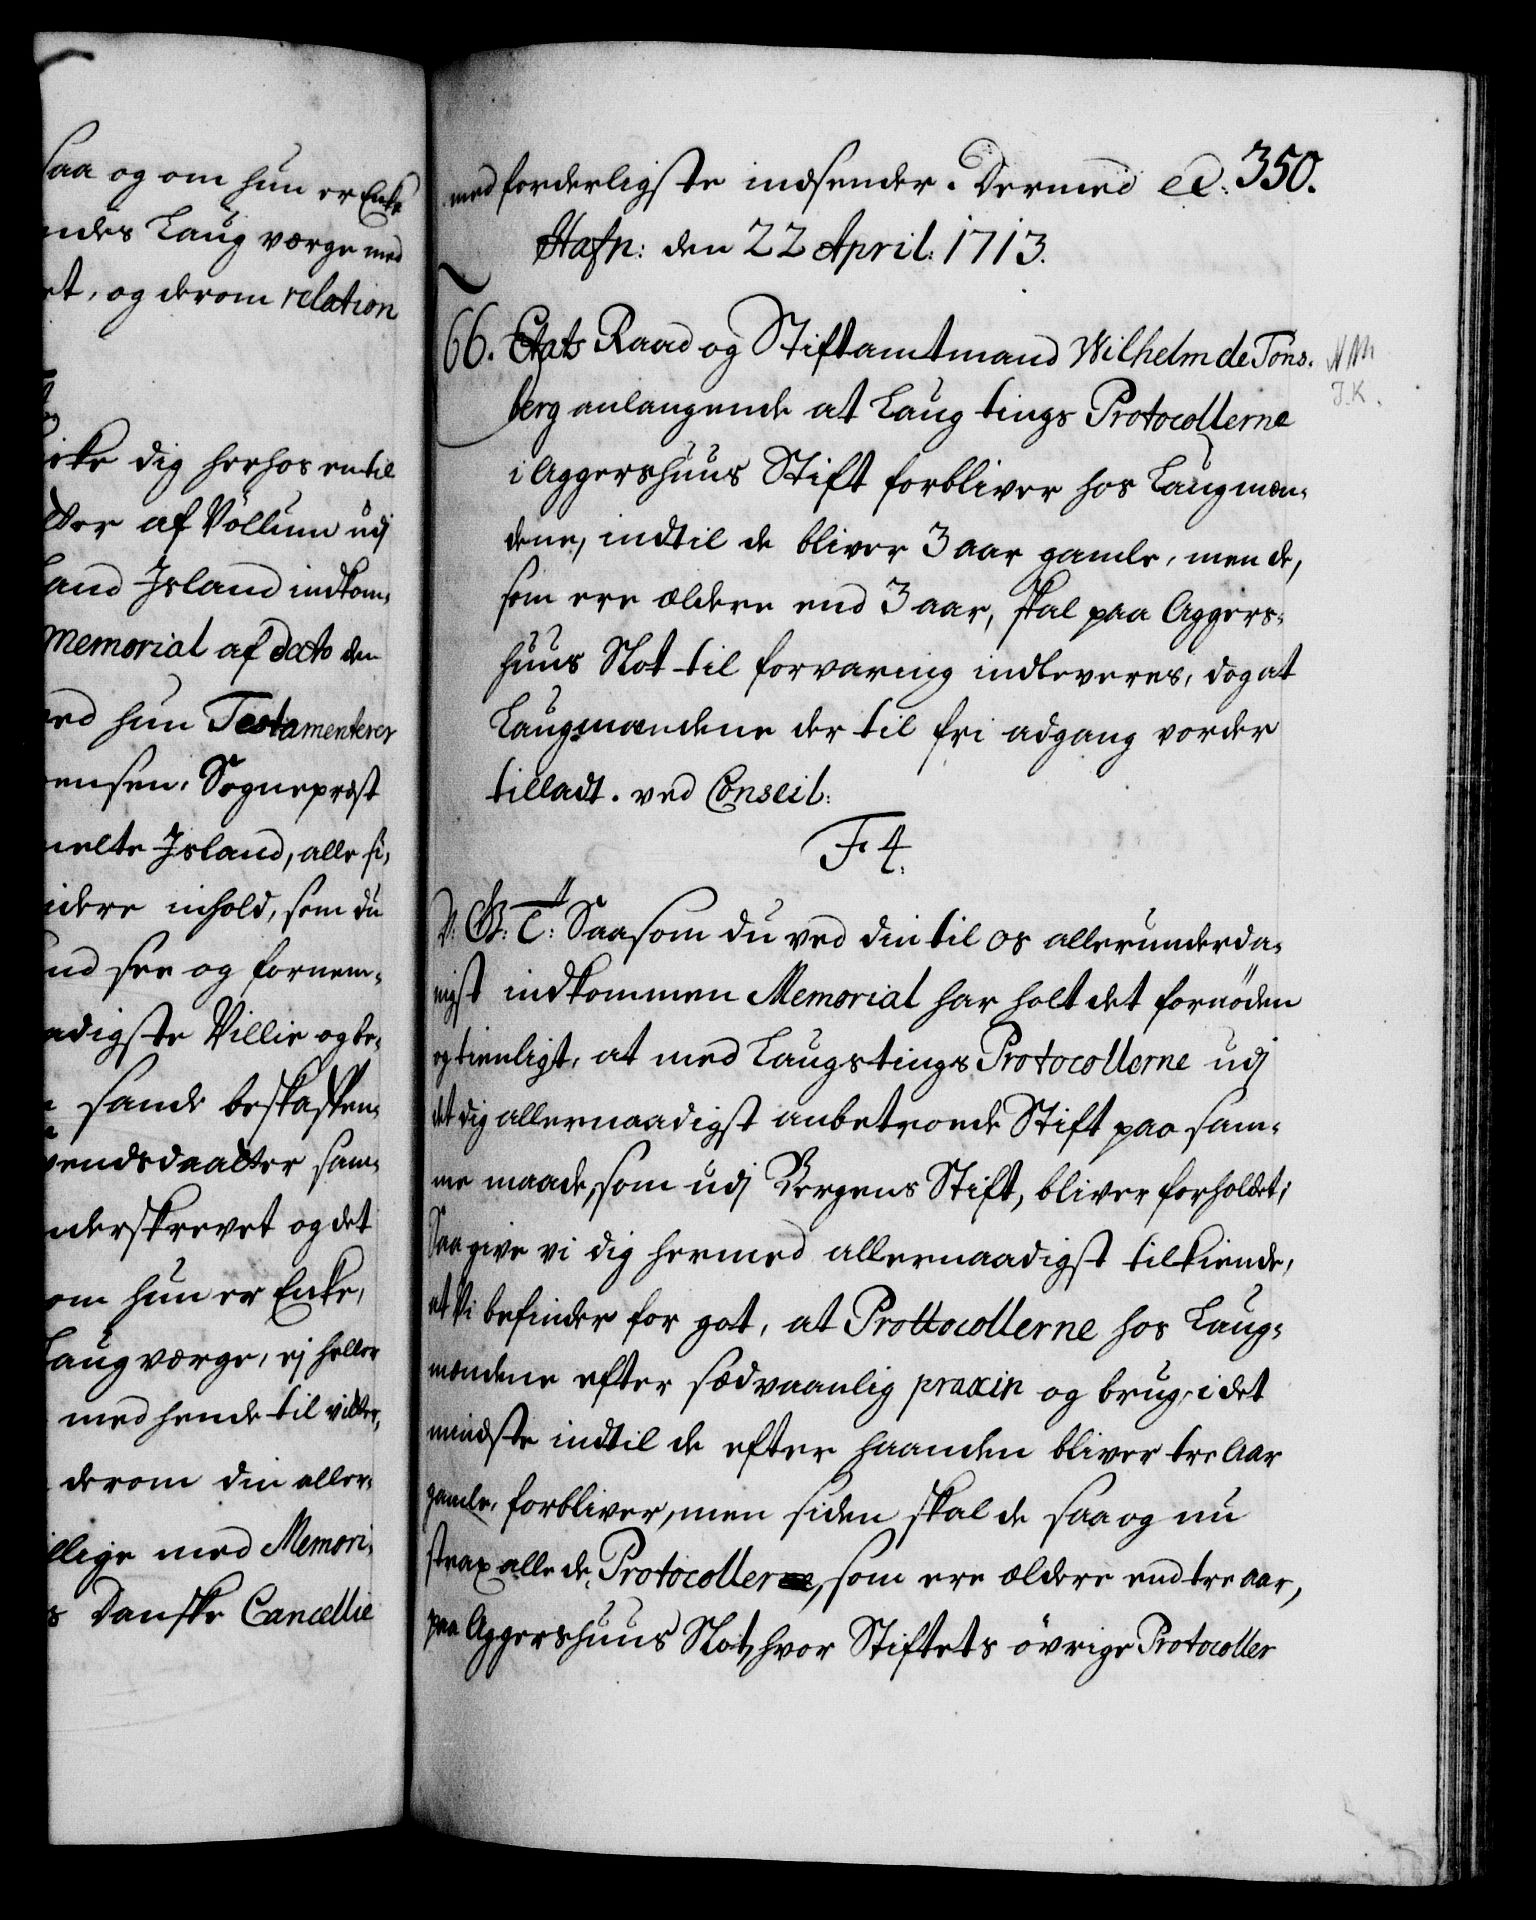 saa og om hun er Enke
ndes Laug værge med
et, og derom relation
icke dig herhos en til
af Völlum udj
land Jsland indkom-
Memorial af dato den
ved hun Testamenterer
ensen, Sogneprest
melte Jsland, alle si,
idere inhold, som du
nd see og fornem-
adigste Villie og be-
sande beskaffen-
vendsdaatter sam-
nderskrevet og det
om hun er Enke,
Laug værge, ej heller
med hende til vidker,
derom din aller-
llige med Memori-
s Danske Cancellie
350.
med forderligste indsender. Dermed etc:
Hafn: den 22 April: 1713.
66. Etats Raad og Stiftamtmand Wilhelm de Tons-
berg anlangende at Laug tings Protocollerne
i Aggershuus Stift forbliver hos Laugmæn-
dene, indtil de bliver 3 aar gamle, men de,
som ere ældere end 3 aar, skal paa Aggers-
huus Slot til forvaring indleveres, dog at
Laugmændene der til fri adgang vorder
tilladt. ved Conseil:
F. 4.
V: G: T: Saasom du ved din til os allerunderda-
nigst indkommen Memorial har holt det fornöden
og tienligt, at med Laugstings Protocollerne udj
det dig allernaadigst anbetroede Stift paa sam-
me maade, som udj Bergens Stift, bliver forholdet;
Saa give vi dig hermed allernaadigst tilkiende,
at Vi befinder for got, at Prottocollerne hos Laug-
mændene efter sædvaanlig praxin og brug, i det
mindste indtil de efter haanden bliver tre Aar
gamle, forbliver, men siden skal de saa og nu
strax alle de Protocoller, som ere ældere end tre aar,
paa Aggershuus Slot, hvor Stiftets övrige Protocoller